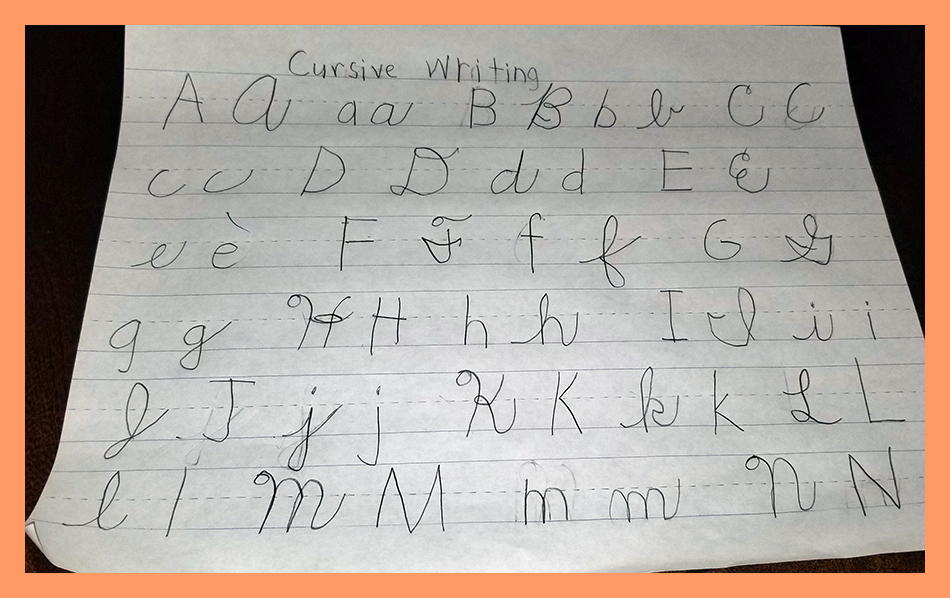 Cursive Writing
A A a a B B b b C C
c c D D d d E E
e è F F f f G G
g g H H h h I I i i
J J j j K K k k L L
l l M M m m N N